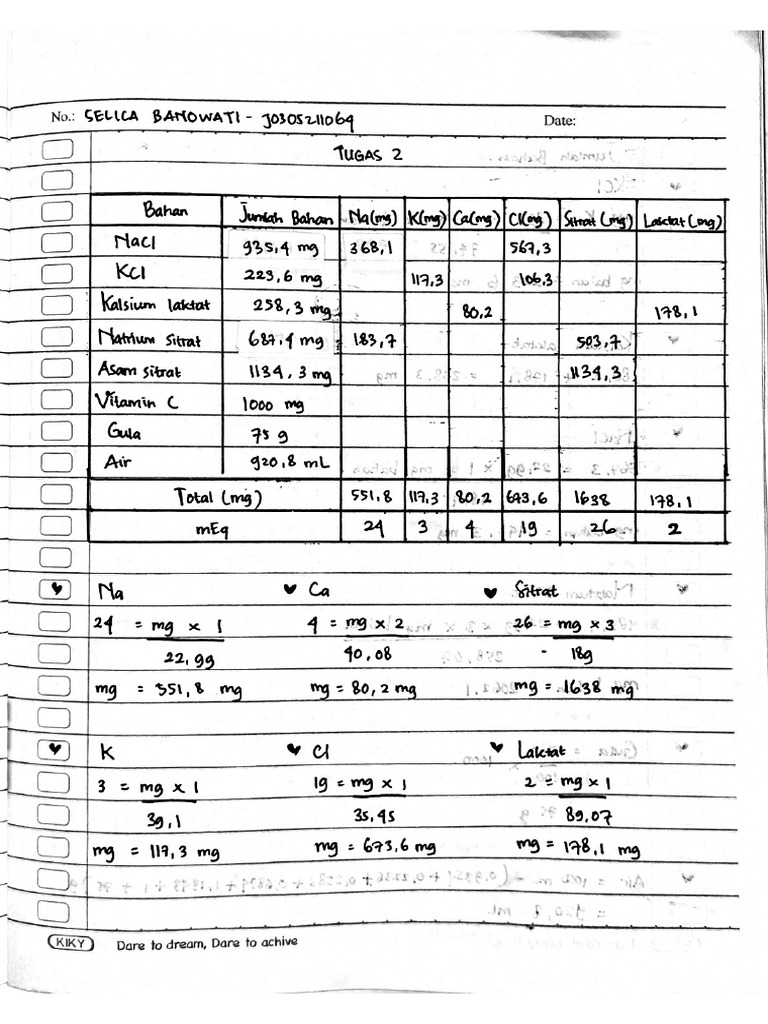 No.: SELICA BANOWATI - J0305211064 Date:
TUGAS 2
Bahan Jumlah Bahan Na(mg) K(mg) Ca(mg) Cl(mg) Sitrat (mg) Laktat (mg)
NaCl 935,4 mg 368,1 567,3
KCl 223,6 mg 117,3 106,3
Kalsium laktat 258,3 mg 80,2 178,1
Natrium sitrat 687,4 mg 183,7 503,7
Asam sitrat 1134,3 mg 1134,3
Vitamin C 1000 mg
Gula 75 g
Air 920,8 mL
Total (mg) 551,8 117,3 80,2 673,6 1638 178,1
mEq 24 3 4 19 26 2
♥ Na ♥ Ca ♥ Sitrat
24 = mg x 1 4 = mg x 2 26 = mg x 3
22,99 40,08 189
mg = 551,8 mg mg = 80,2 mg mg = 1638 mg
♥ K ♥ Cl ♥ Laktat
3 = mg x 1 19 = mg x 1 2 = mg x 1
39,1 35,45 89,07
mg = 117,3 mg mg = 673,6 mg mg = 178,1 mg
KIKY Dare to dream, Dare to achive